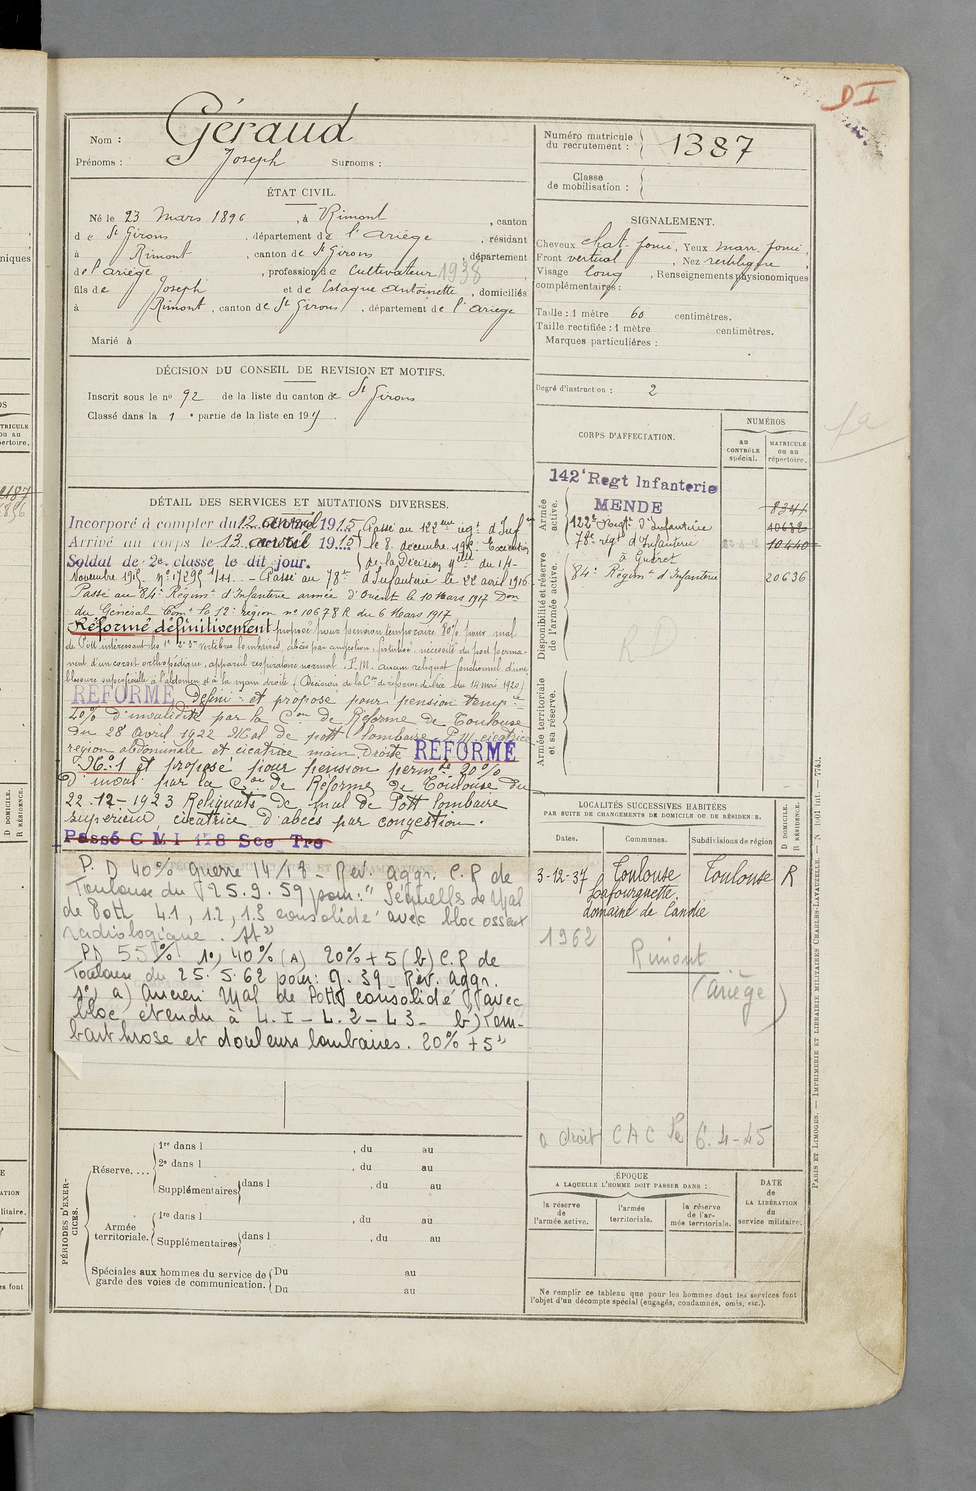 DI
Nom : Géraud
Prénoms : Joseph Surnoms :
Numéro matricule du recrutement : 1387
Classe de mobilisation :
ÉTAT CIVIL.
Né le 23 Mars 1896, à Rimont, canton
de St Girons, département de l'Ariège, résidant
à Rimont, canton de St Girons, département
de l'Ariège, profession de Cultivateur 1938
fils de Joseph et de Estaque Antoinette, domiciliés
à Rimont, canton de St Girons, département de l'Ariège
Marié à
SIGNALEMENT.
Cheveux chat. foncé, Yeux marr. foncé,
Front vertical, Nez rectiligne,
Visage long, Renseignements physionomiques
complémentaires :
Taille : 1 mètre 60 centimètres.
Taille rectifiée : 1 mètre centimètres.
Marques particulières :
Degré d'instruction : 2
DÉCISION DU CONSEIL DE REVISION ET MOTIFS.
Inscrit sous le no 92 de la liste du canton de St Girons
Classé dans la 1e partie de la liste en 191
CORPS D'AFFECTATION.
NUMÉROS
AU CONTRÔLE spécial.
MATRICULE ou au répertoire.
Armée active.
142e Regt Infanterie
MENDE
122e Regt d'Infanterie
78e régt d'Infanterie 10440
à Guéret
84e Régiment d'Infanterie 20636
Disponibilité et réserve de l'armée active.
RD
Armée territoriale et sa réserve.
DÉTAIL DES SERVICES ET MUTATIONS DIVERSES.
Incorporé à compter du 12 avril 1915 Passé au 122me régt d'Infie
Arrivé au corps le 13 avril 1915 le 8 décembre 1915 Exécution
Soldat de 2e classe le dit jour. de la Décision du 14
Novembre 1915 no 17295 1/11. - Passé au 78e d'Infanterie le 22 avril 1916
Passé au 84e Régiment d'Infanterie armée d'Orient le 10 Mars 1917 Don
du Général Comt la 12e région no 10678 R du 6 Mars 1917
Réformé définitivement proposé pour pension temporaire 80% pour mal
de Pott intéressant les 1e 2e 3e vertèbres lombaires, abcès par congestion, fistulisé, nécessité du port perma-
nent d'un corset orthopédique, appareil respiratoire normal. P.M. aucun reliquat fonctionnel d'une
blessure superficielle à l'abdomen et à la main droite. (Décision de la Con de réforme du 14 mai 1920)
RÉFORMÉ Défini. et proposé pour pension tempre
40% d'invalidité par la Con de Réforme de Toulouse
du 28 Avril 1922 Mal de pott lombaire P.M. cicatrice
région abdominale et cicatrice main droite RÉFORMÉ
No 1 et proposé pour pension permte 20%
d'inval. par la Con de Réforme de Toulouse du
22-12-1923 Reliquats de mal de Pott lombaire
supérieur, cicatrice d'abcès par congestion.
Passé C M I Sce Tre
P. D 40% guerre 14/18 - Rév. aggr. C.R de
Toulouse du 25.9.59 pour : "Séquelles de Mal
de Pott L1, L2, L3 consolidé avec bloc osseux
radiologique.
PD 55% 1o) 40% (A) 20% + 5 (b) C.R de
Toulouse du 25.5.62 pour : G. 39 - Rév. aggr.
1o) a) Ancien Mal de Pott consolidé avec
bloc étendu à L.I - L.2 - L3 - b) Lom-
barthrose et douleurs lombaires. 20% + 5"
LOCALITÉS SUCCESSIVES HABITÉES
PAR SUITE DE CHANGEMENTS DE DOMICILE OU DE RÉSIDENCE.
Dates. Communes. Subdivisions de région. D DOMICILE. R RÉSIDENCE.
3-12-37 Toulouse Toulouse R
Lafourguette
domaine de Candie
1962 Rimont
(Ariège)
a droit CAC 6.4-45
PÉRIODES D'EXERCICES.
Réserve....
1re dans l , du au
2e dans l , du au
Supplémentaires dans l , du au
Armée territoriale.
1re dans l , du au
Supplémentaires dans l , du au
Spéciales aux hommes du service de garde des voies de communication.
Du au
Du au
ÉPOQUE
A LAQUELLE L'HOMME DOIT PASSER DANS :
la réserve de l'armée active.
l'armée territoriale.
la réserve de l'armée territoriale.
DATE de LA LIBÉRATION du service militaire.
Ne remplir ce tableau que pour les hommes dont les services font
l'objet d'un décompte spécial (engagés, condamnés, omis, etc.).
PARIS ET LIMOGES. — IMPRIMERIE ET LIBRAIRIE MILITAIRES CHARLES-LAVAUZELLE.